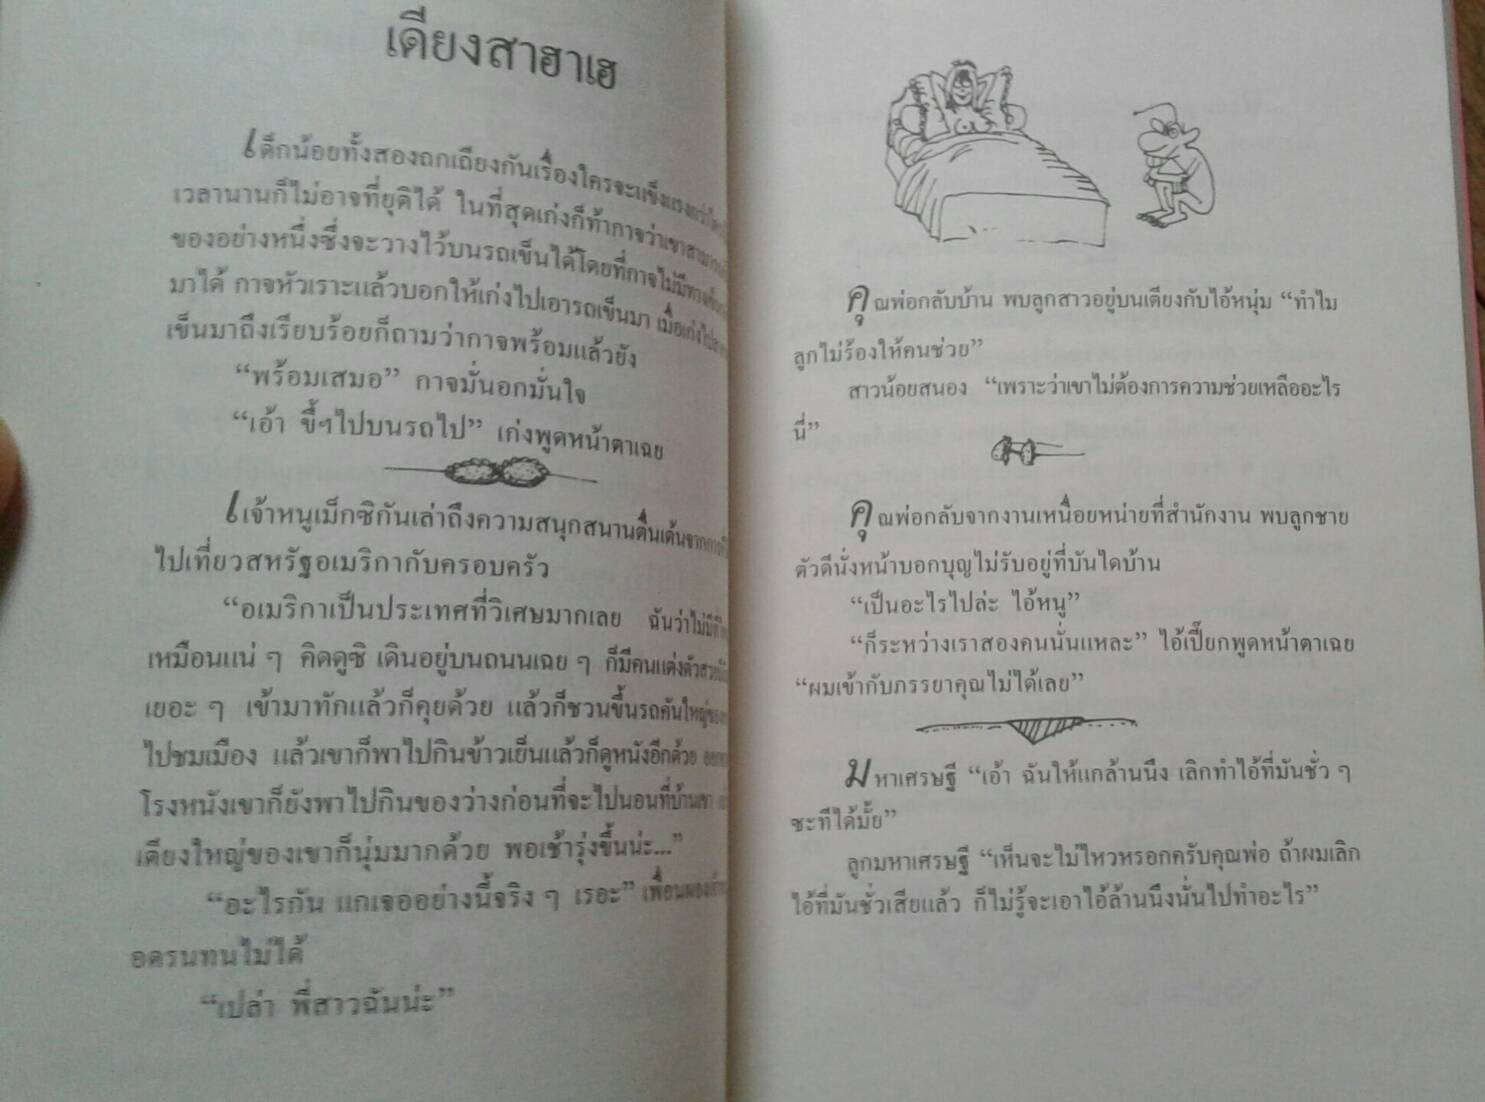 เดียงสาฮาเฮ
เด็กน้อยทั้งสองถกเถียงกันเรื่องใครจะแข็งแรงกว่า
เวลานานก็ไม่อาจที่ยุติได้ ในที่สุดเก่งก็ท้ากาจว่าเขาสามารถ
ของอย่างหนึ่งซึ่งจะวางไว้บนรถเข็นได้โดยที่กาจไม่มีทาง
มาได้ กาจหัวเราะแล้วบอกให้เก่งไปเอารถเข็นมา เมื่อเก่งไป
เข็นมาถึงเรียบร้อยก็ถามว่ากาจพร้อมแล้วยัง
“พร้อมเสมอ” กาจมั่นอกมั่นใจ
“เอ้า ขึ้นไปบนรถไป” เก่งพูดหน้าตาเฉย
เจ้าหนูเม็กซิกันเล่าถึงความสนุกสนานตื่นเต้นจากการ
ไปเที่ยวสหรัฐอเมริกากับครอบครัว
“อเมริกาเป็นประเทศที่วิเศษมากเลย ฉันว่าไม่มีที่
เหมือนแน่ ๆ คิดดูซิ เดินอยู่บนถนนเฉย ๆ ก็มีคนแต่งตัว
เยอะ ๆ เข้ามาทักแล้วก็คุยด้วย แล้วก็ชวนขึ้นรถคันใหญ่
ไปชมเมือง แล้วเขาก็พาไปกินข้าวเย็นแล้วก็ดูหนังอีกด้วย
โรงหนังเขาก็ยังพาไปกินของว่างก่อนที่จะไปนอนที่บ้านเขา
เตียงใหญ่ของเขาก็นุ่มมากด้วย พอเช้ารุ่งขึ้นน่ะ...”
“อะไรกัน แกเจออย่างนี้จริง ๆ เรอะ” เพื่อน
อดรนทนไม่ได้
“เปล่า พี่สาวฉันน่ะ”
คุณพ่อกลับบ้าน พบลูกสาวอยู่บนเตียงกับไอ้หนุ่ม “ทำไม
ลูกไม่ร้องให้คนช่วย”
สาวน้อยสนอง “เพราะว่าเขาไม่ต้องการความช่วยเหลืออะไร
นี่”
คุณพ่อกลับจากงานเหนื่อยหน่ายที่สำนักงาน พบลูกชาย
ตัวดีนั่งหน้าบอกบุญไม่รับอยู่ที่บันไดบ้าน
“เป็นอะไรไปล่ะ ไอ้หนู”
“ก็ระหว่างเราสองคนนั่นแหละ” ไอ้เปี๊ยกพูดหน้าตาเฉย
“ผมเข้ากับภรรยาคุณไม่ได้เลย”
มหาเศรษฐี “เอ้า ฉันให้แกล้านนึง เลิกทำไอ้ที่มันชั่ว ๆ
ซะทีได้มั้ย”
ลูกมหาเศรษฐี “เห็นจะไม่ไหวหรอกครับคุณพ่อ ถ้าผมเลิก
ไอ้ที่มันชั่วเสียแล้ว ก็ไม่รู้จะเอาไอ้ล้านนึงนั่นไปทำอะไร”